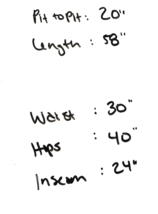 Pit to Pit: 20"
Length: 58"
Waist: 30"
Hips: 40"
Inseam: 24"